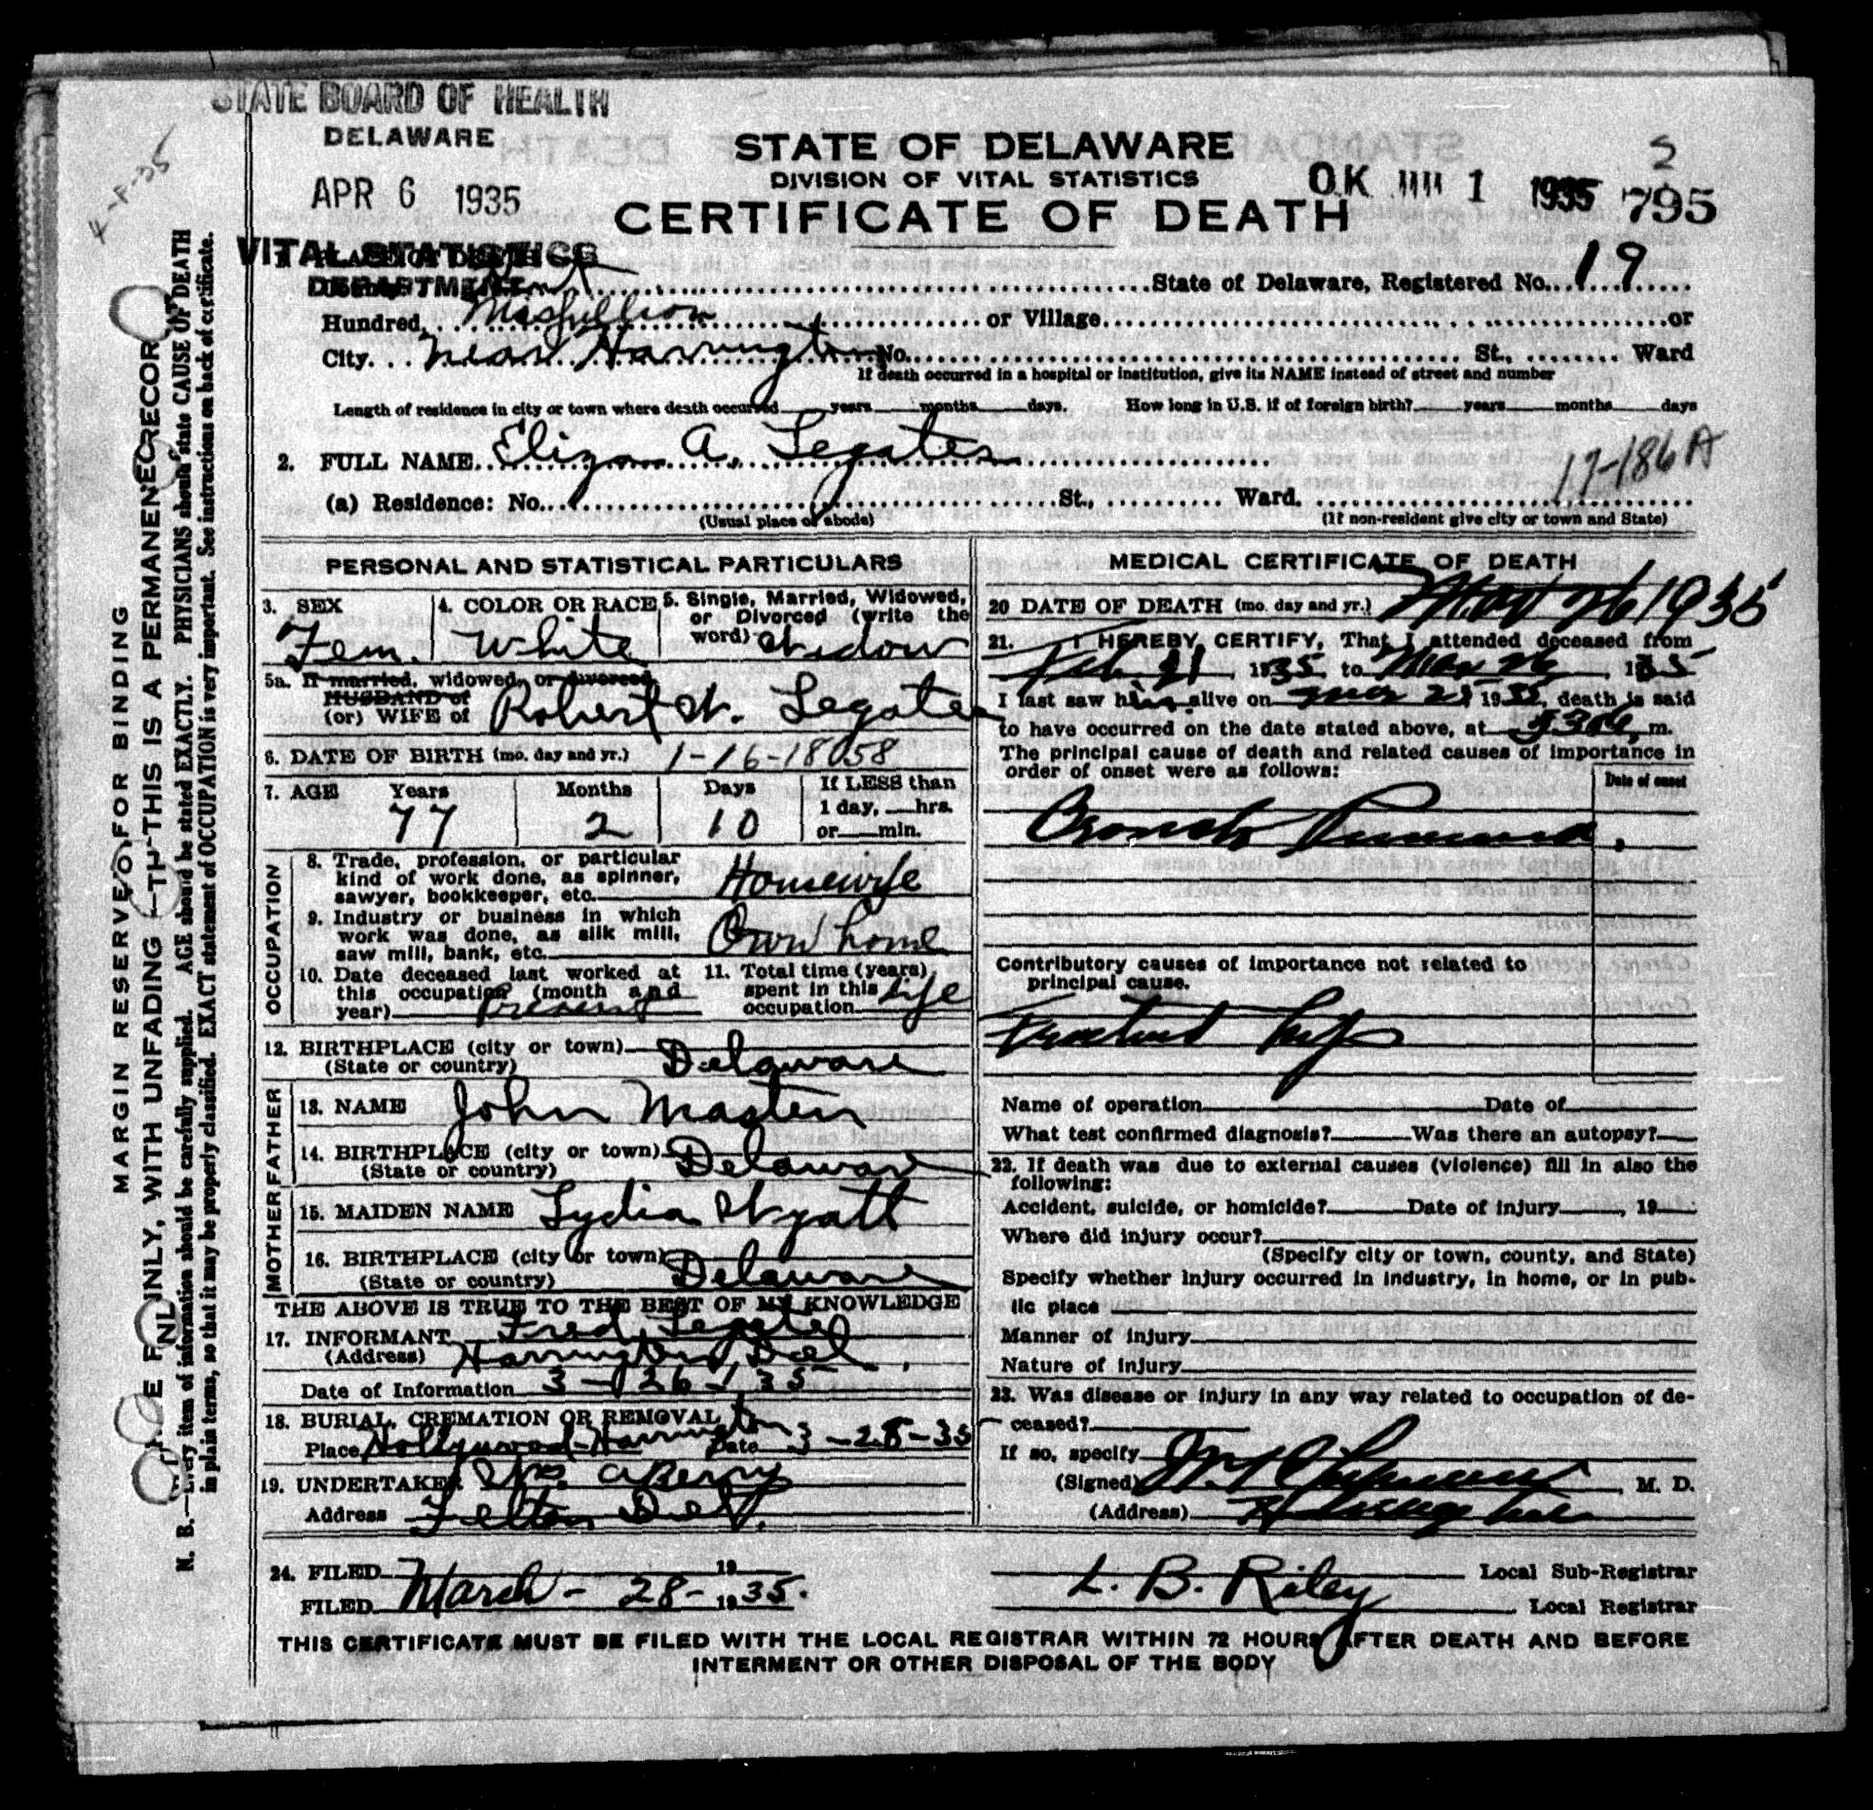 STATE BOARD OF HEALTH
DELAWARE
APR 6 1935
VITAL STATISTICS
DEPARTMENT
4-8-35
STATE OF DELAWARE
DIVISION OF VITAL STATISTICS
CERTIFICATE OF DEATH
OK 1 1935 795
Kent State of Delaware, Registered No. 19
Hundred Mispillion or Village or
City Near Harrington No. St., Ward
If death occurred in a hospital or institution, give its NAME instead of street and number
Length of residence in city or town where death occurred years months days. How long in U.S. if of foreign birth? years months days
2. FULL NAME Eliza A. Legates
17-186A
(a) Residence: No. St., Ward.
(Usual place of abode) (If non-resident give city or town and State)
PERSONAL AND STATISTICAL PARTICULARS
3. SEX Fem.
4. COLOR OR RACE White
5. Single, Married, Widowed, or Divorced (write the word) Widow
5a. If married, widowed, or divorced,
HUSBAND of
(or) WIFE of Robert W. Legates
6. DATE OF BIRTH (mo. day and yr.) 1-16-18058
7. AGE Years Months Days If LESS than
77 2 10 1 day, hrs.
or min.
OCCUPATION
8. Trade, profession, or particular
kind of work done, as spinner,
sawyer, bookkeeper, etc. Housewife
9. Industry or business in which
work was done, as silk mill,
saw mill, bank, etc. Own home
10. Date deceased last worked at
this occupation (month and
year) Present
11. Total time (years)
spent in this
occupation Life
12. BIRTHPLACE (city or town)
(State or country) Delaware
FATHER
13. NAME John Masten
14. BIRTHPLACE (city or town)
(State or country) Delaware
MOTHER
15. MAIDEN NAME Lydia Wyatt
16. BIRTHPLACE (city or town)
(State or country) Delaware
THE ABOVE IS TRUE TO THE BEST OF MY KNOWLEDGE
17. INFORMANT Fred Legates
(Address) Harrington, Del.
Date of Information 3-26-35
18. BURIAL, CREMATION OR REMOVAL
Place Hollywood-Harrington Date 3-28-35
19. UNDERTAKER Berry
Address Felton Del.
MEDICAL CERTIFICATE OF DEATH
20 DATE OF DEATH (mo. day and yr.) Mar 26 1935
21. I HEREBY CERTIFY, That I attended deceased from
Feb 21 1935 to Mar 26, 1935
I last saw h alive on Mar 25 1935, death is said
to have occurred on the date stated above, at m.
The principal cause of death and related causes of importance in
order of onset were as follows:
Date of onset
Broncho Pneumonia
Contributory causes of importance not related to
principal cause.
Fractured hip
Name of operation Date of
What test confirmed diagnosis? Was there an autopsy?
22. If death was due to external causes (violence) fill in also the
following:
Accident, suicide, or homicide? Date of injury , 19
Where did injury occur?
(Specify city or town, county, and State)
Specify whether injury occurred in industry, in home, or in pub-
lic place
Manner of injury
Nature of injury
23. Was disease or injury in any way related to occupation of de-
ceased?
If so, specify
(Signed) M. D.
(Address) Harrington
24. FILED 19
FILED March-28-1935.
Local Sub-Registrar
L. B. Riley Local Registrar
THIS CERTIFICATE MUST BE FILED WITH THE LOCAL REGISTRAR WITHIN 72 HOURS AFTER DEATH AND BEFORE
INTERMENT OR OTHER DISPOSAL OF THE BODY
MARGIN RESERVED FOR BINDING
INLY, WITH UNFADING THIS IS A PERMANENT RECORD
N. B.—Every item of information should be carefully supplied. AGE should be stated EXACTLY. PHYSICIANS should state CAUSE OF DEATH
in plain terms, so that it may be properly classified. EXACT statement of OCCUPATION is very important. See instructions on back of certificate.